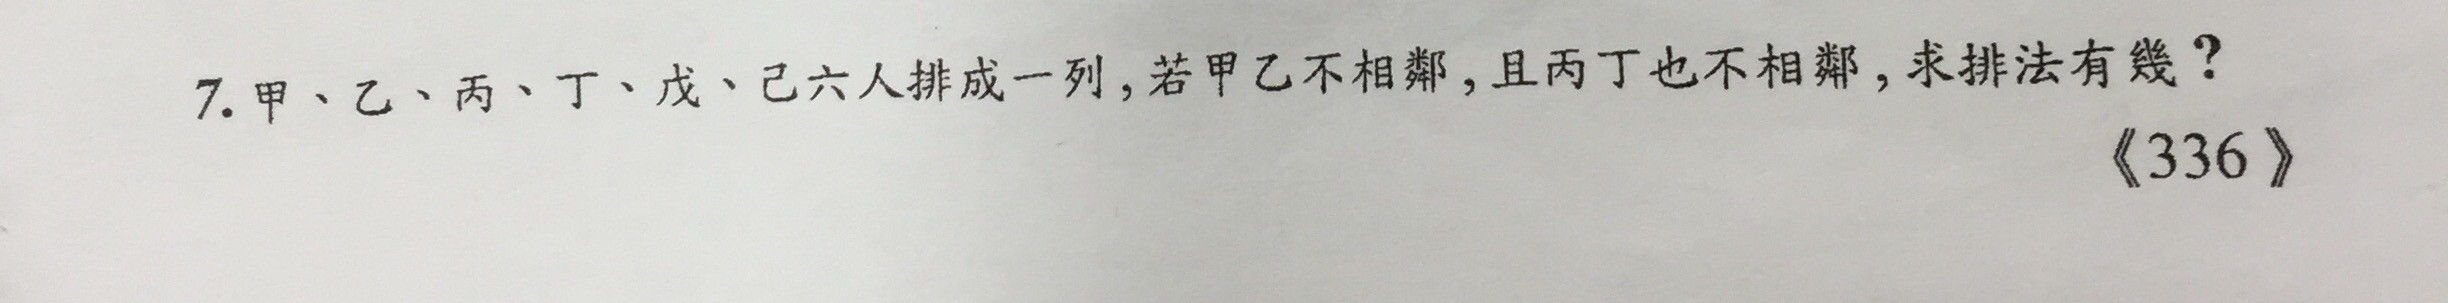 7. 甲、乙、丙、丁、戊、己六人排成一列,若甲乙不相鄰,且丙丁也不相鄰,求排法有幾?
《336》